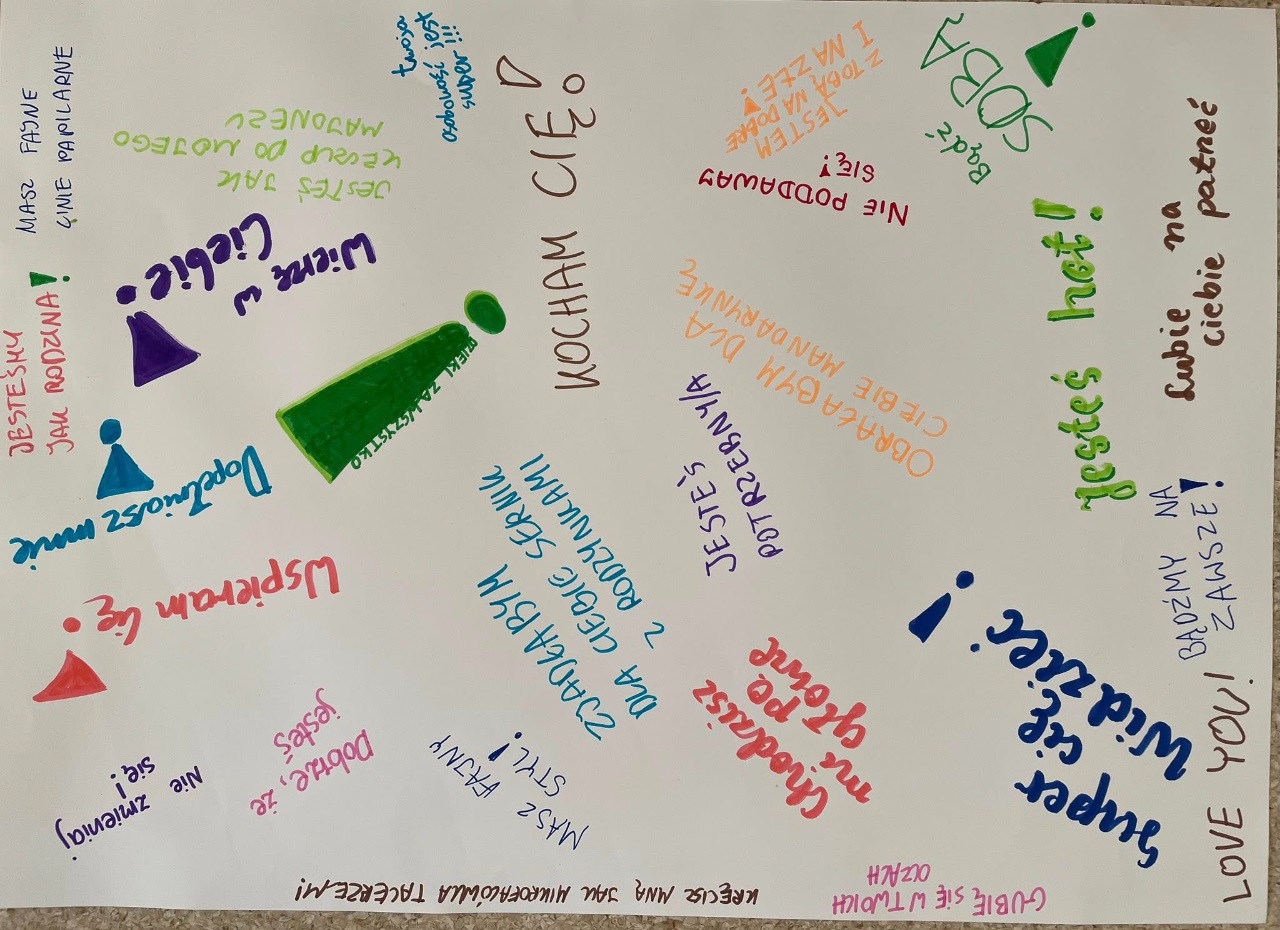 MASZ FAJNE
LINIE PAPILARNE
JESTEŚMY
JAK RODZINA!
JESTEŚ JAK
KECZUP DO MOJEGO
MAJONEZU
twoja
osobowość jest
super!!!
KOCHAM CIĘ!
JESTEM
Z TOBĄ NA DOBRE
I NA ZŁE!
Bądź
SOBĄ!
NIE PODDAWAJ
SIĘ!
Wierzę w
Ciebie!
DZIĘKI ZA WSZYSTKO
!
OBRAŁABYM DLA
CIEBIE MANDARYNKĘ
Jesteś hot!
Lubię na
ciebie patrzeć
JESTEŚ
POTRZEBNY/A
Dopełniasz mnie!
Wspieram Cię!
ZJADŁABYM
DLA CIEBIE SERNIK
Z RODZYNKAMI
BĄDŹMY NA
ZAWSZE!
Super cię
widzieć!
Chodzisz
mi po
głowie
Nie zmieniaj
się!
Dobrze, że
jesteś
MASZ FAJNY
STYL!
LOVE YOU!
KRĘCISZ MNĄ JAK MIKROFALÓWKA TALERZEM!
GUBIĘ SIĘ W TWOICH
OCZACH